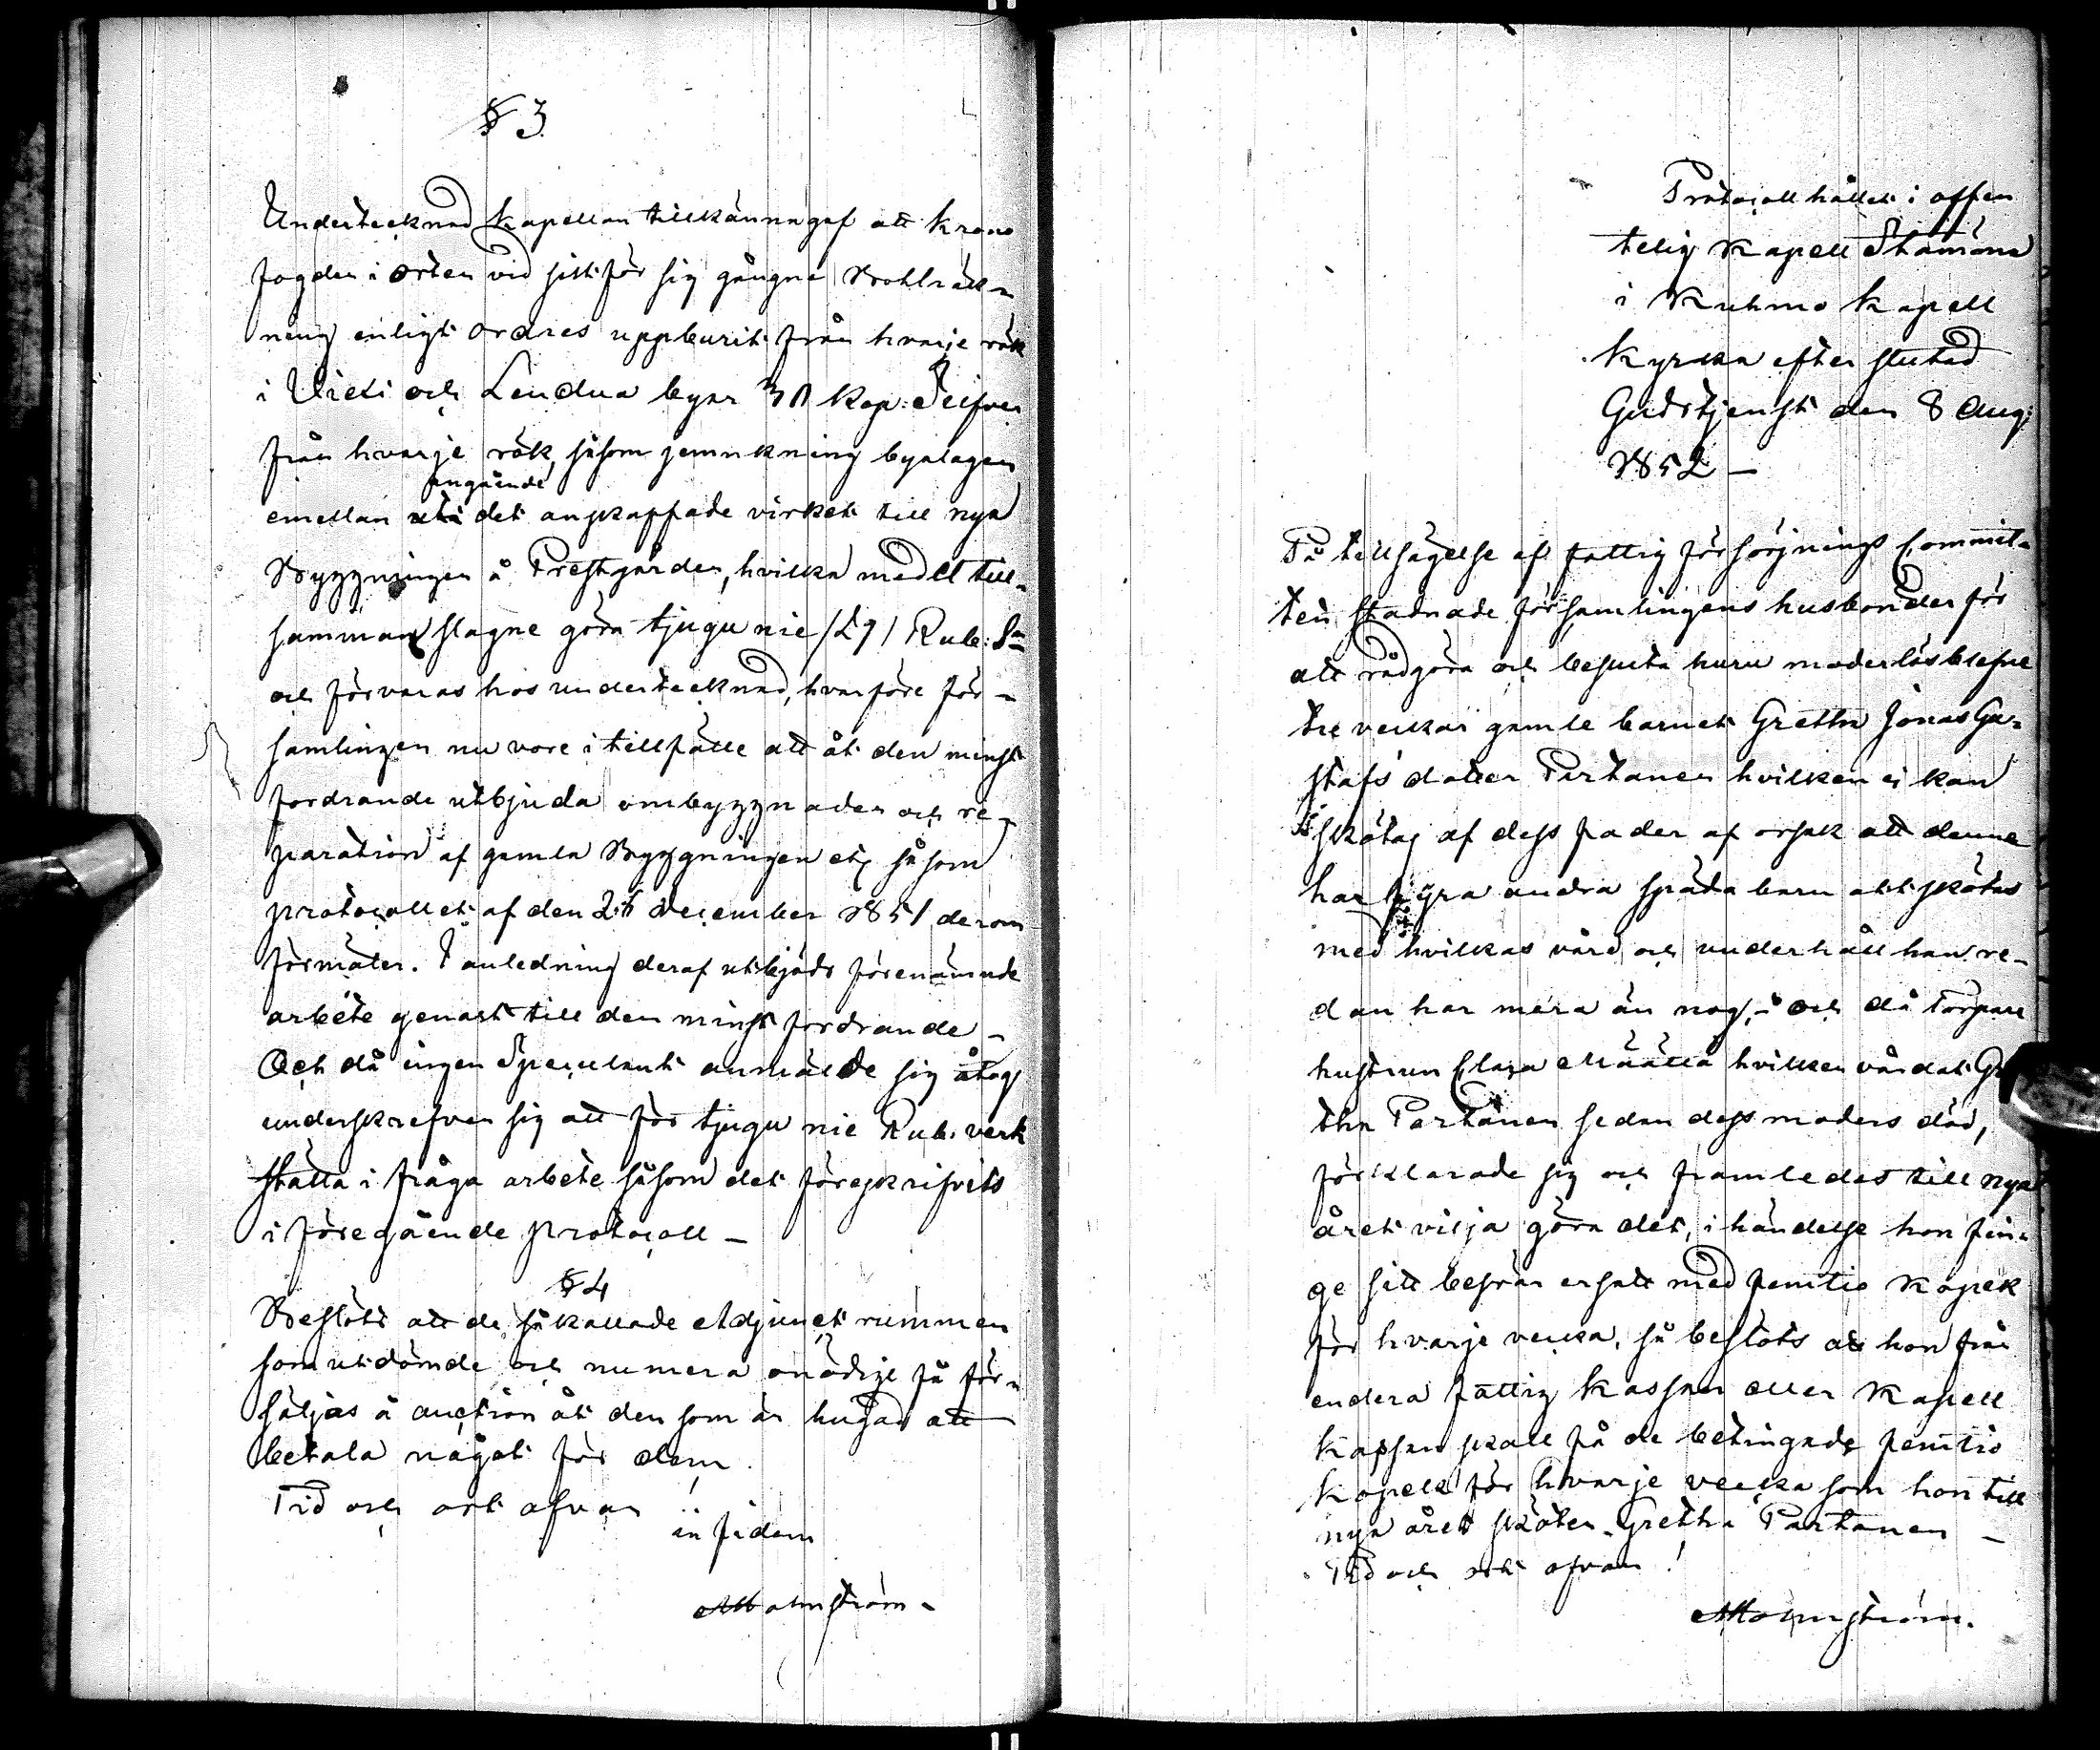 § 3
Undertecknad Kapellan tillkännagaf att krono
fogden i orten vid sist för sig gångne Bohlräk-
ning enligt ordres uppburit från hvarje rök
i Vieki och Lendua byar 30 kop: Silfver
från hvarje rök, såsom jemnkning byalagen
angående
emellan det anskaffade virket till nya
Byggningen å Prestgården, hvilka medel till-
samman slagne göra tjugu nie /29/ Rub: Sr
och förvaras hos undertecknad, hvarföre för-
samlingen nu vore i tillfälle att åt den minst
fordrande utbjuda ombyggnaden och re-
paration af gamla Byggningen etc såsom
protocollet af den 26 December 1851 derom
förmäler. I anledning deraf utbjöds förenämnde
arbete genast till den minst fordrande -
Och då ingen Speculant anmälde sig åtog
underskrefven sig att för tjugu nie Rub. verk
ställa i fråga arbete såsom det föreskrifvits
i föregående protocoll -
§ 4
Beslöts att de så kallade Adjunct rummen
som utdömde och numera onödige få för-
säljas å auction åt den som är hugad att
betala något för dem.
Tid och ort ofvan !
in fidem
Malmström.
Protocoll hållet i offen
telig Kapell Stämma
i Kuhmo Kapell
Kyrka efter slutad
Gudstjenst den 8 Aug:
1852 -
På tillsägelse af fattig försörjnings Commit-
ten stadnade församlingens husbönder för
att rådgöra och besluta huru moderlös blefne
tre veckar gamle barnet Gretha Jonas Gu-
stafs dotter Partanen hvilken ej kan
skötas af dess fader af orsak att denne
har fyra andra späda barn att skötas
med hvilkas vård och underhåll han re-
dan har mera än nog, - och då Torpare
hustrun Clara Määttä hvilken vårdat Gre
tha Partanen sedan dess moders död,
förklarade sig och framledes till nya
året vilja göra det, i händelse hon fin-
ge sitt besvär ersatt med femtio kopek
för hvarje vecka, så beslöts att hon från
endera fattig kassan eller Kapell
kassan skall få de betingade femtio
kopek för hvarje vecka som hon till
nya året sköter Gretha Partanen -
Tid och ort ofvan !
Malmström.